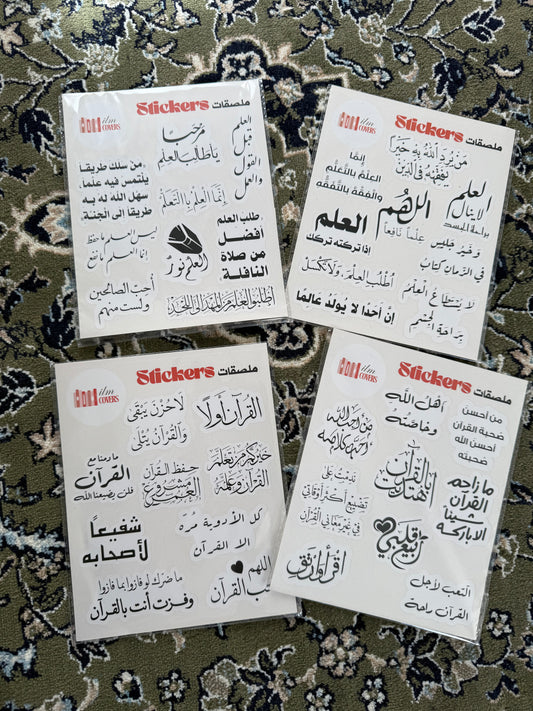 ilm
COVERS
Stickers ملصقات
مرحبًا
يا طالب العلم
العلم
قبل
القول
والعمل
من سلك طريقا
يلتمس فيه علما،
سهل الله له به
طريقا إلى الجنة.
إنما العلم بالتعلم
طلب العلم
أفضل
من صلاة
النافلة
ليس العلم ما حفظ
إنما العلم ما نفع
العلم نور
أحب الصالحين
ولست منهم
اطلبوا العلم من المهد إلى اللحد
ilm
COVERS
Stickers ملصقات
من يرد الله به خيرا
يفقهه في الدين
إنما
العلم بالتعلم
والفقه بالتفقه
العلم
لا ينال
براحة الجسد
اللهم
علما نافعا
العلم
إذا تركته تركك
وخير جليس
في الزمان كتاب
اطلب العلم ولا تكسل
لا يستطاع العلم
براحة الجسم
إن أحدا لا يولد عالما
ilm
COVERS
Stickers ملصقات
لا حزن يبقى
والقرآن يتلى
القرآن أولا
ما دمنا مع
القرآن
فلن يضيعنا الله
حفظ القرآن
مشروع
العمر
خيركم من تعلم
القرآن وعلمه
شفيعاً
لأصحابه
كل الأدوية مرة
الا القرآن
اللهم
القرآن
ما ضرك لو فازوا بما فازوا
وفزت أنت بالقرآن
ilm
COVERS
Stickers ملصقات
أهل الله
وخاصته
من احسن
صحبة القرآن
أحسن الله
صحبته
من أحب الله
أحب كلامه
بالقرآن
نهتدي
ما زاحم
القرآن
شيئا
إلا باركه
ندمت على
تضييع أكثر أوقاتي
في غير معاني القرآن
ربيع قلبي
اقرأ وارتق
التعب لأجل
القرآن راحة